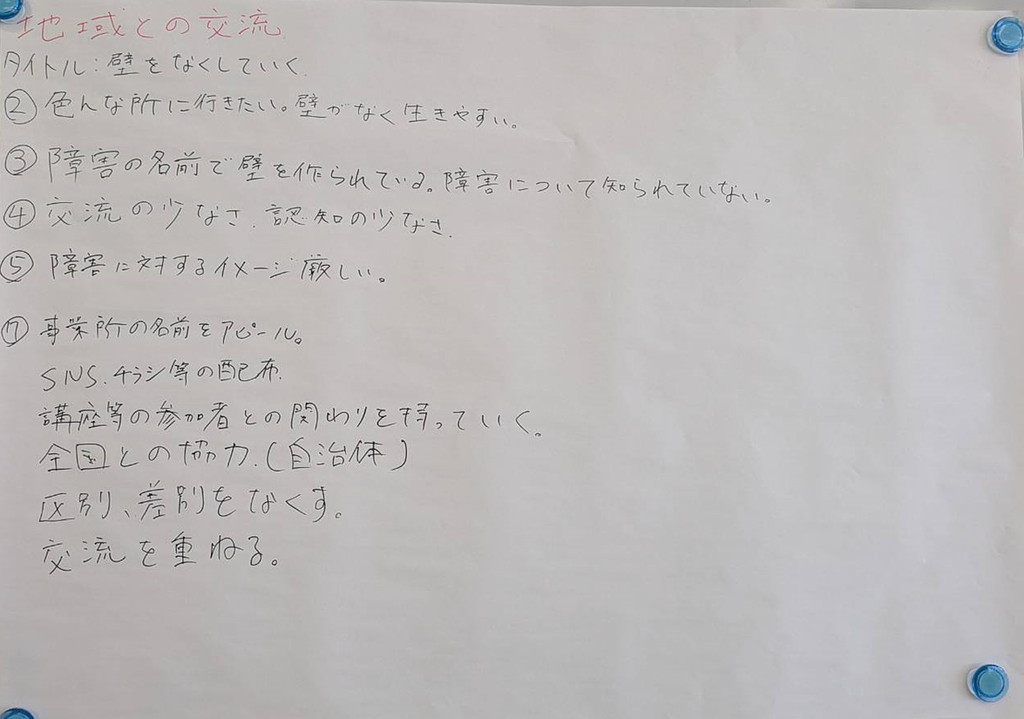 地域との交流
タイトル:壁をなくしていく
② 色んな所に行きたい。壁がなく生きやすい。
③ 障害の名前で壁を作られている。障害について知られていない。
④ 交流の少なさ、認知の少なさ
⑤ 障害に対するイメージ厳しい。
⑦ 事業所の名前をアピール。
SNS、チラシ等の配布
講座等の参加者との関わりを持っていく。
全国との協力、(自治体)
区別、差別をなくす。
交流を重ねる。